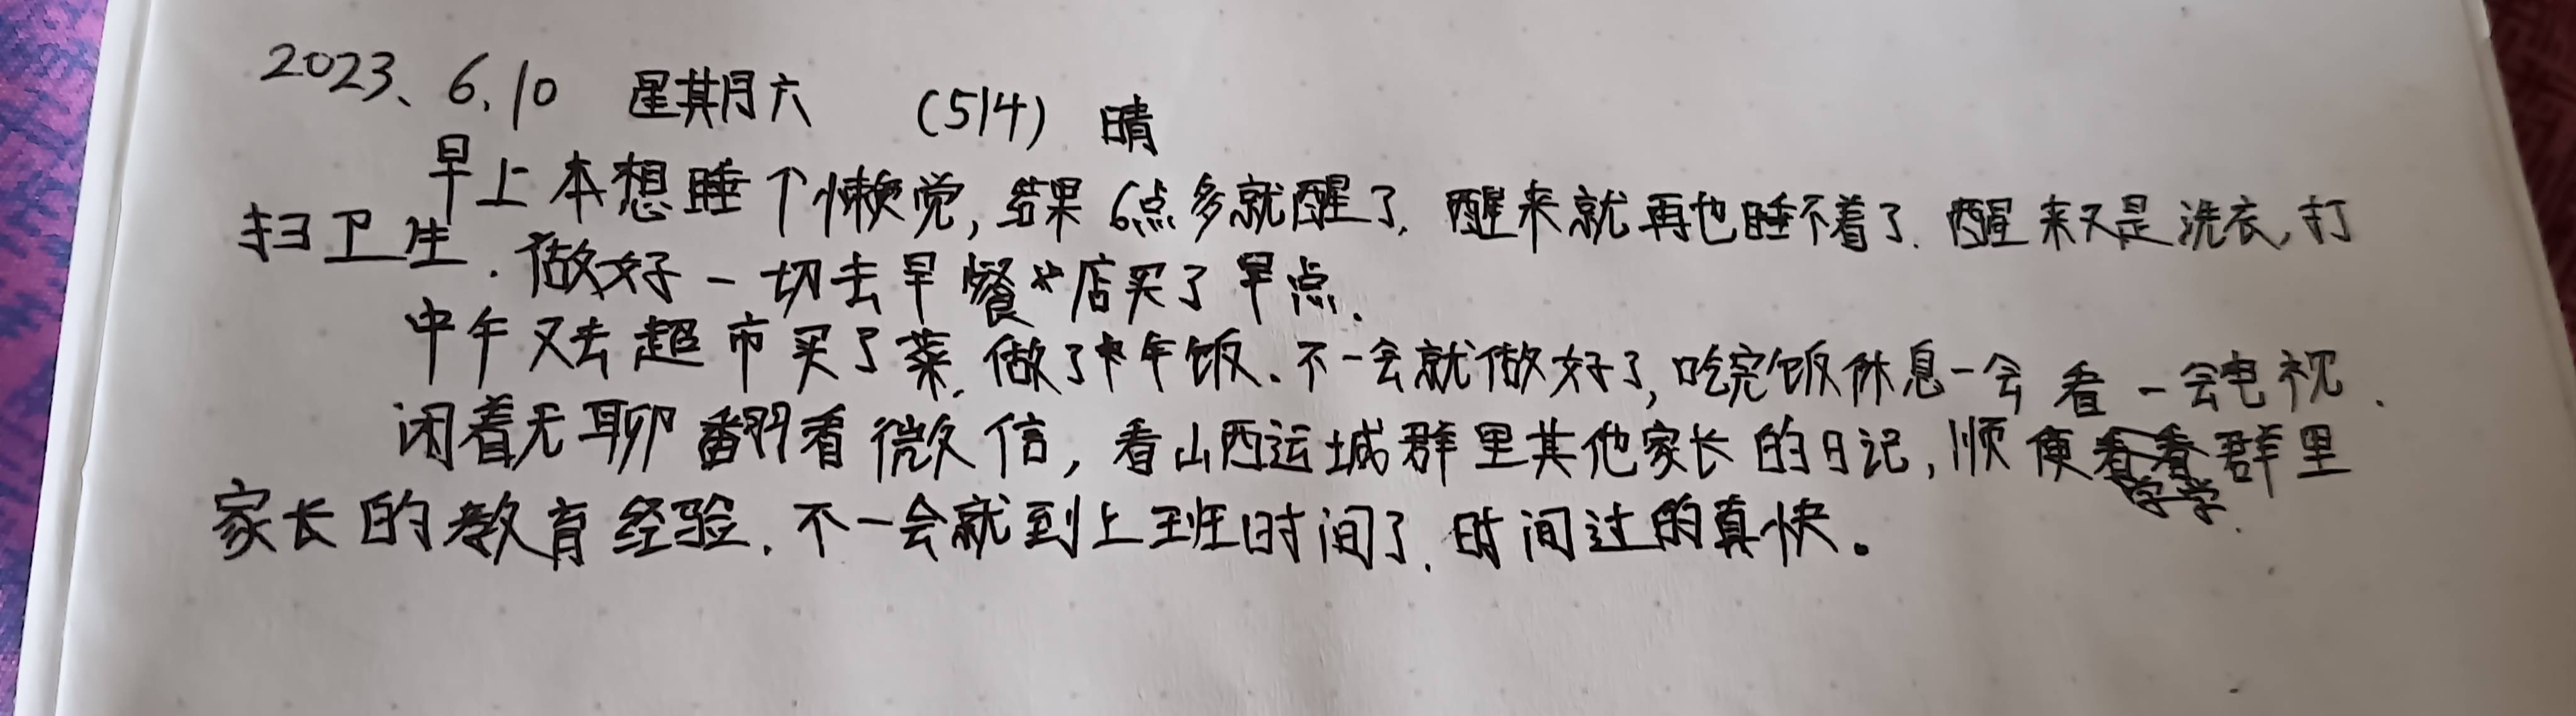 2023、6.10 星期六 (514) 晴
早上本想睡个懒觉,结果6点多就醒了.醒来就再也睡不着了.醒来又是洗衣,打
扫卫生.做好一切去早餐店买了早点.
中午又去超市买了菜.做了中午饭.不一会就做好了,吃完饭休息一会看一会电视.
闲着无聊翻看微信,看山西运城群里其他家长的日记,顺便学学群里
家长的教育经验.不一会就到上班时间了.时间过的真快。